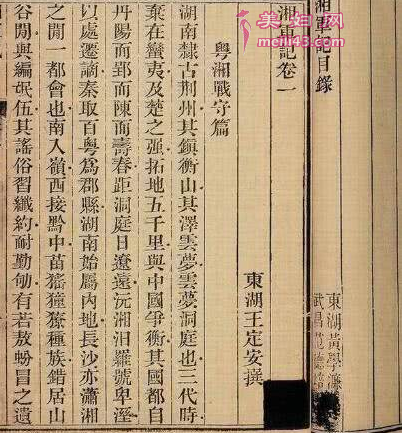 湘軍記目錄
東湖黃學濂
武昌范
湘軍記卷一
東湖王定安撰
粵湘戰守篇
湖南隸古荆州其鎮衡山其澤雲夢雲夢洞庭也三代時
棄在蠻夷及楚之强拓地五千里與中國爭衡其國都自
丹陽而郢而陳而壽春距洞庭日遼遠沅湘汨羅號卑溼
以處遷謫秦取百粤爲郡縣湖南始屬內地長沙亦瀟湘
之閒一都會也南入嶺西接黔中苗猺獞獠種族錯居山
谷閒與編氓伍其謠俗習纖約耐勤劬有若敖蚡冒之遺
美妇网
meili43.com